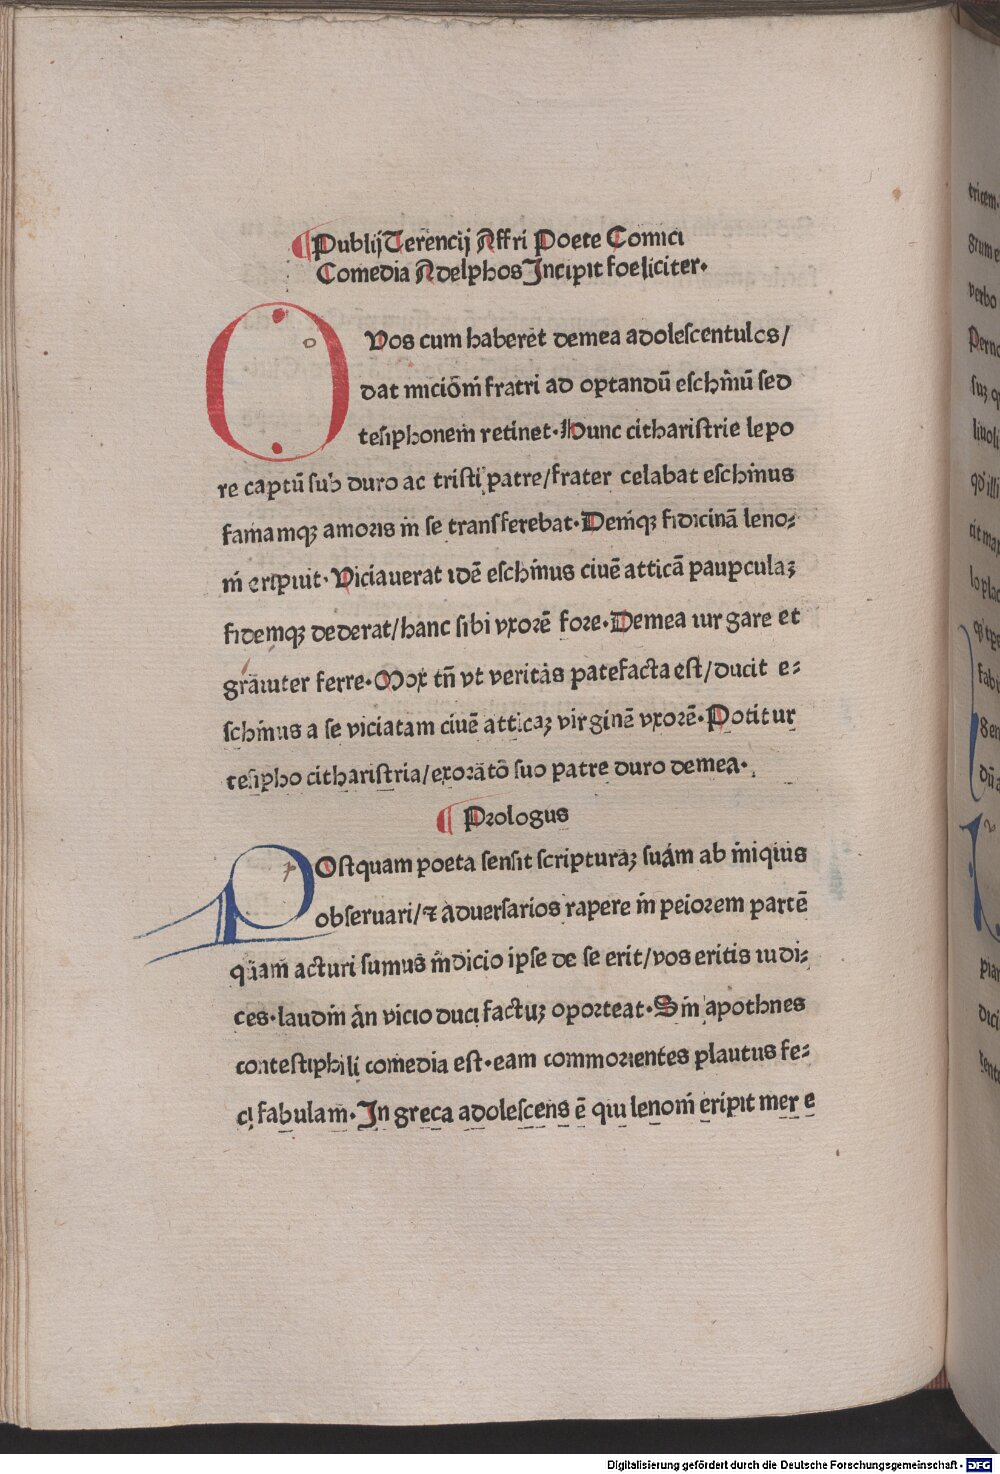 Publij Terencij Affri Poete Comici
Comedia Adelphos Incipit foeliciter.
DVos cum haberet demea adolescentulos/
dat micioni fratri ad optandū eschinū sed
tesiphonem retinet. Hunc citharistrie lepo
re captū sub duro ac tristi patre/frater celabat eschinus
famamqꝫ amoris in se transferebat. Deniqꝫ fidicinā leno⸗
ni eripuit. Viciauerat idē eschinus ciuē atticā paupculaꝫ
fidemqꝫ dederat/hanc sibi vxorē fore. Demea iurgare et
grauiter ferre. Mox tn̄ vt veritas patefacta est/ducit e⸗
schinus a se viciatam ciuē atticaꝫ virginē vxorē. Potitur
tesipho citharistria/exorato suo patre duro demea.
Prologus
POstquam poeta sensit scripturaꝫ suam ab iniquis
obseruari/⁊ aduersarios rapere in peiorem partē
quam acturi sumus indicio ipse de se erit/vos eritis iudi⸗
ces. laudin an vicio duci factuꝫ oporteat. Sin apothnes
contestiphili comedia est. eam commorientes plautus fe⸗
ci fabulam. In greca adolescens ē qui lenoni eripit mer e
tricem
verbo
fabu
Digitalisierung gefördert durch die Deutsche Forschungsgemeinschaft - DFG